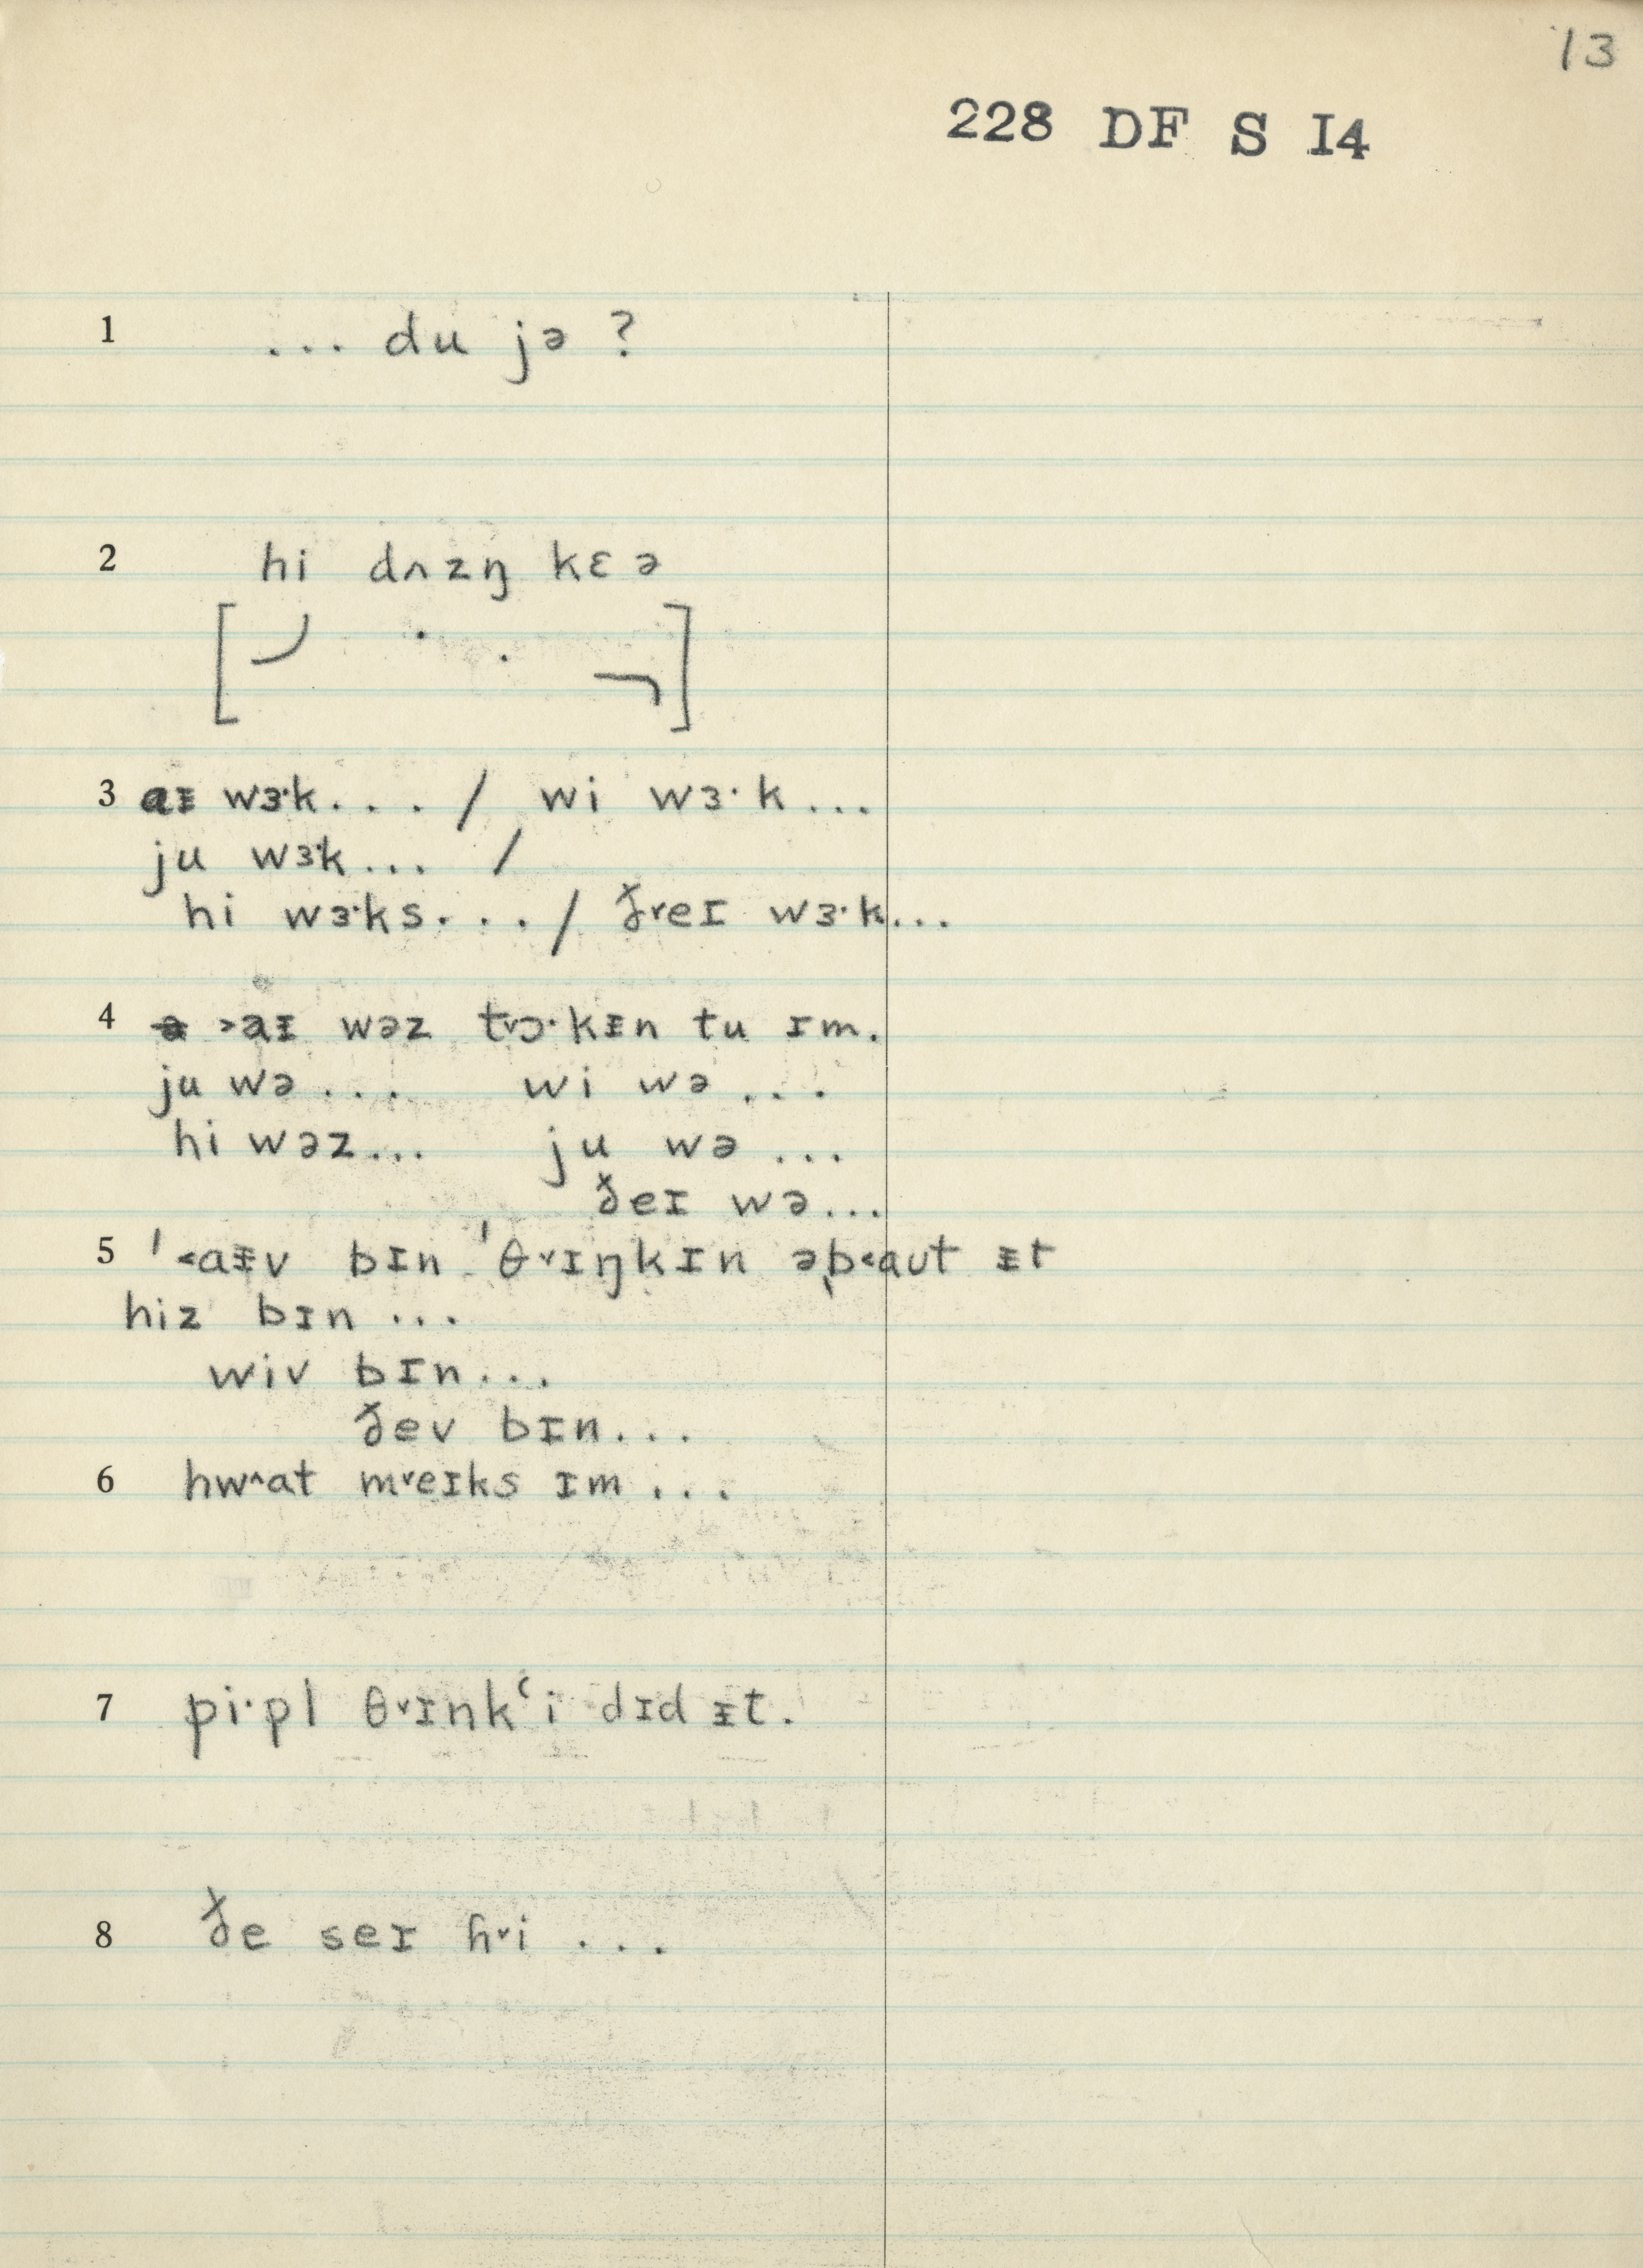 13
228 DF S I4
1 ... du jə ?
2 hi dʌzŋ kɛə
3 aᵻ wɜ·k... / wi wɜ·k...
ju wɜ·k... /
hi wɜ·ks... / ð˅eɪ wɜ·k...
4 ˃aᵻ wəz t˅ɔ·kᵻn tu ɪm.
ju wə... wi wə...
hi wəz... ju wə...
ðeɪ wə...
5 ˈ˂aᵻv bɪn ˈθ˅ɪŋkɪn əb˂aut ᵻt
hiz bɪn ...
wiv bɪn...
ðev bɪn...
6 hw˄at m˅eɪks ɪm ...
7 pi·pl θ˅ɪnkʿi dɪd ᵻt.
8 ðe seɪ h˅i ...